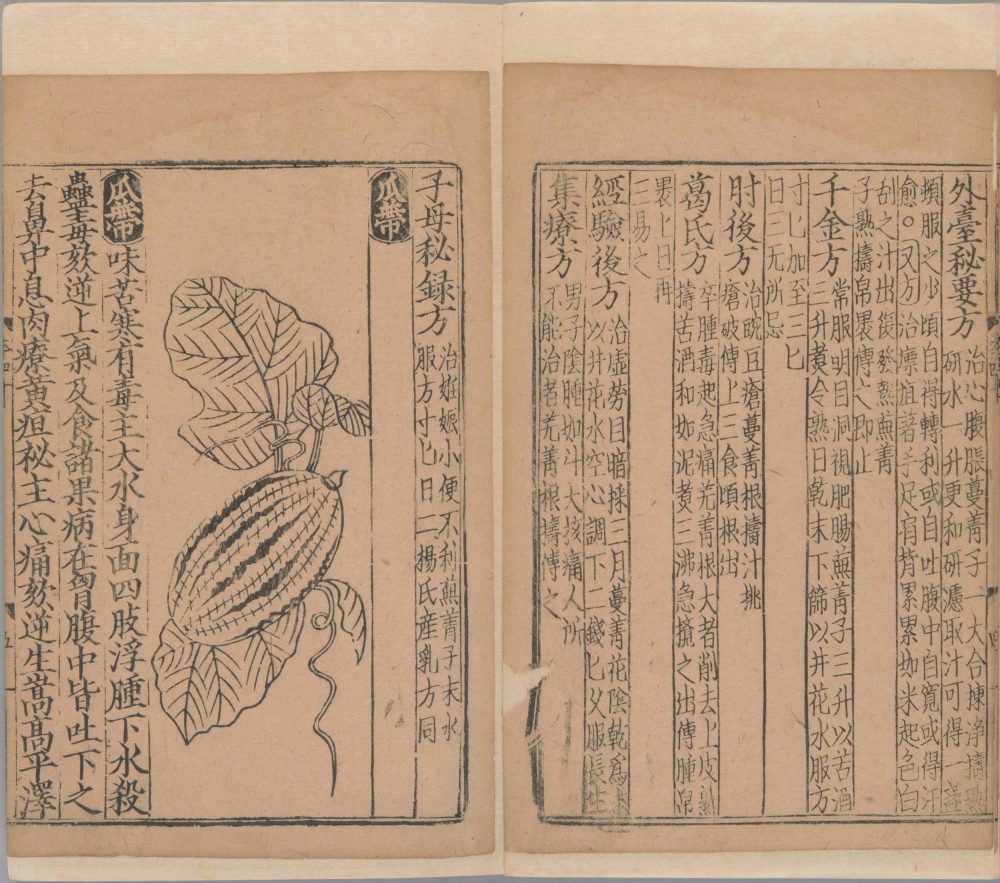 外臺秘要方 治心腹脹蔓菁子一大合揀淨擣熟
研水一升更和研濾取汁可得一盞
頓服之少頃自得轉利或自吐腹中自寬或得汗
愈○又方治瘭疽著手足肩背累累如米起色白
刮之汁出復發熱蕪菁
子熟擣帛裹傅之即止
千金方 常服明目洞視肥腸蕪菁子三升以苦酒
三升煑令熟日乾末下篩以井花水服方
寸匕加至三匕
日三无所忌
肘後方 治豌豆瘡蔓菁根擣汁挑
瘡破傅上三食頃根出
葛氏方 卒腫毒起急痛芜菁根大者削去上皮熟
擣苦酒和如泥煑三沸急攪之出傅腫帛
裹上日再
三易之
經驗後方 治虛勞目暗採三月蔓菁花陰乾爲末
以井花水空心調下二錢匕乆服長生
集療方 男子陰腫如斗大核痛人所
不能治者芜菁根擣傅之
子母秘録方 治妊娠小便不利蕪菁子末水
服方寸匕日二楊氏産乳方同
瓜蔕
瓜蔕 味苦寒有毒主大水身面四肢浮腫下水殺
蠱毒欬逆上氣及食諸果病在胷腹中皆吐下之
去鼻中息肉療黃疸祕主心痛欬逆生嵩高平澤